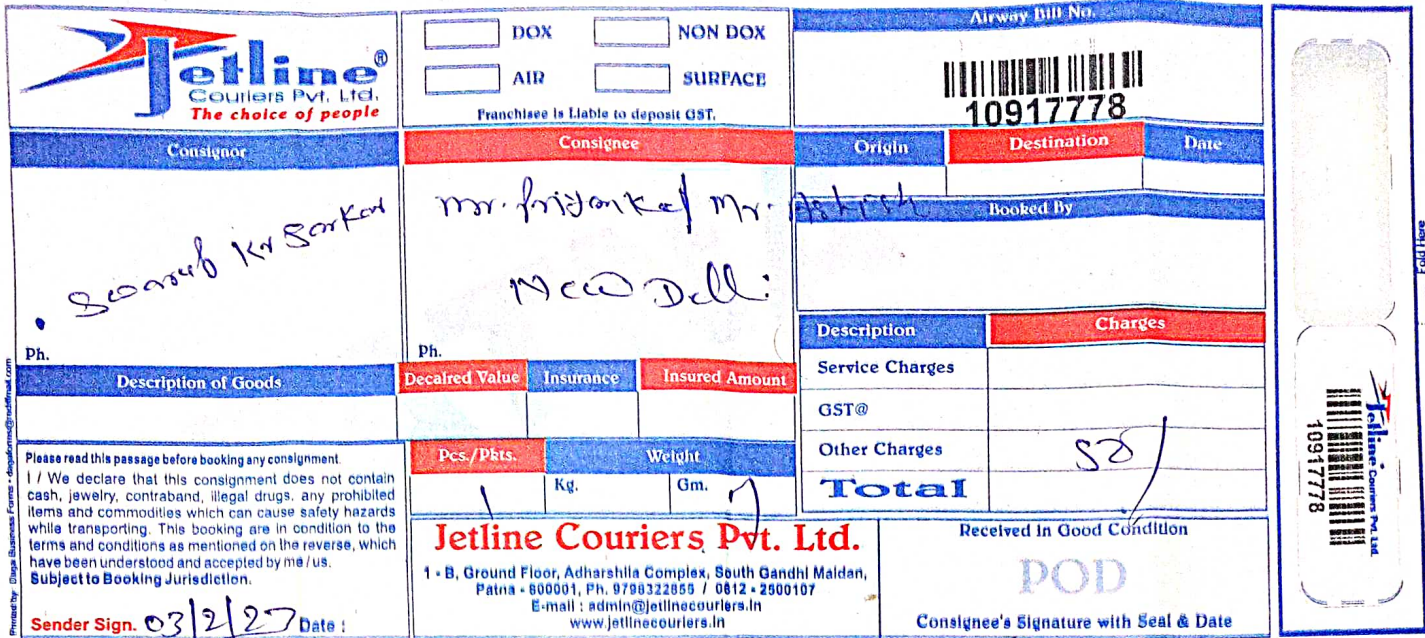 Jetline®
Couriers Pvt. Ltd.
The choice of people
DOX
NON DOX
AIR
SURFACE
Franchisee is Liable to deposit GST.
Airway Bill No.
10917778
Consignor
Kr Sarkar
Ph.
Consignee
Mr. Priyanka / Mr. Ashish
New Delhi
Ph.
Origin
Destination
Date
Booked By
Description of Goods
Decalred Value
Insurance
Insured Amount
Description
Charges
Service Charges
GST@
Other Charges
Total
Pcs./Pkts.
Weight
1
Kg.
Gm.
Please read this passage before booking any consignment.
I / We declare that this consignment does not contain
cash, jewelry, contraband, illegal drugs, any prohibited
items and commodities which can cause safety hazards
while transporting. This booking are in condition to the
terms and conditions as mentioned on the reverse, which
have been understood and accepted by me / us.
Subject to Booking Jurisdiction.
Sender Sign. 03/2/27 Date :
Jetline Couriers Pvt. Ltd.
1 - B, Ground Floor, Adharshila Complex, South Gandhi Maidan,
Patna - 800001, Ph. 9798322855 / 0612 - 2500107
E-mail : admin@jetlinecouriers.in
www.jetlinecouriers.in
Received In Good Condition
POD
Consignee's Signature with Seal & Date
Fold Here
Jetline Couriers Pvt. Ltd.
10917778